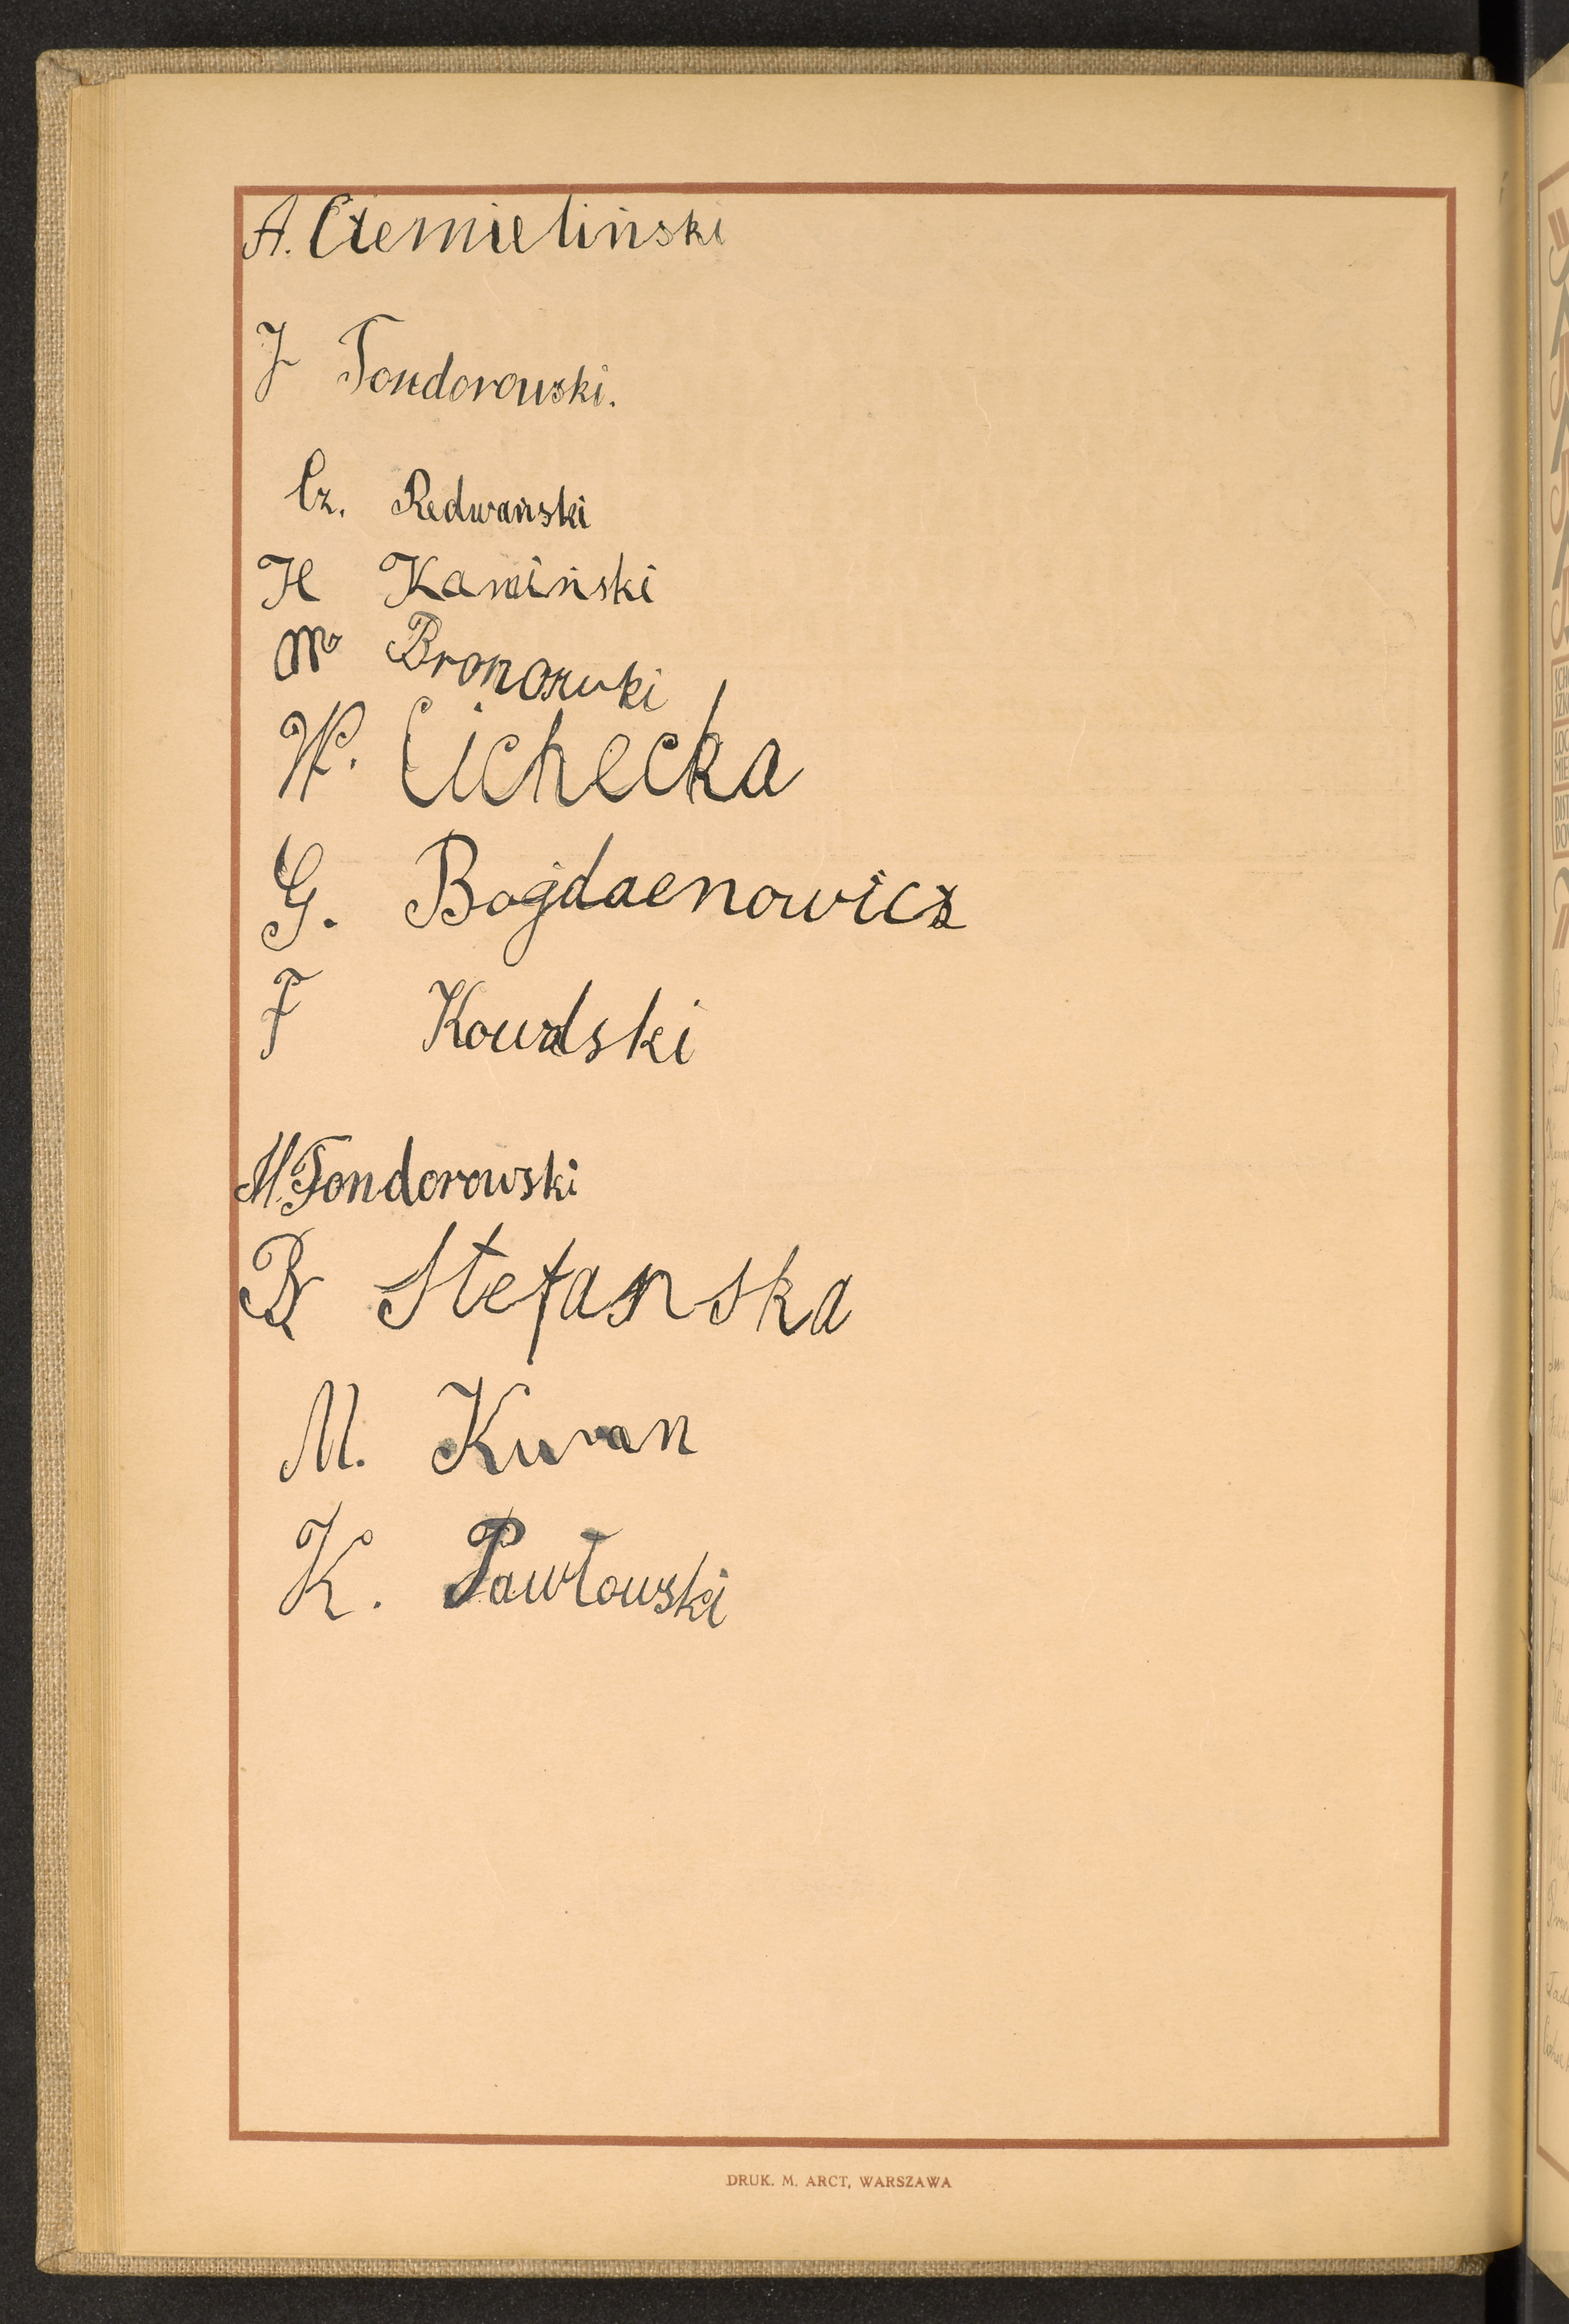 A. Ciemieliński
J Tondorowski.
Cz. Redwański
H Kamiński
M Bronozuki
W. Cichecka
G. Bogdaenowicz
F Kowalski
M. Tondorowski
B Stefanska
M. Kuran
K. Pawłowski
DRUK. M. ARCT, WARSZAWA